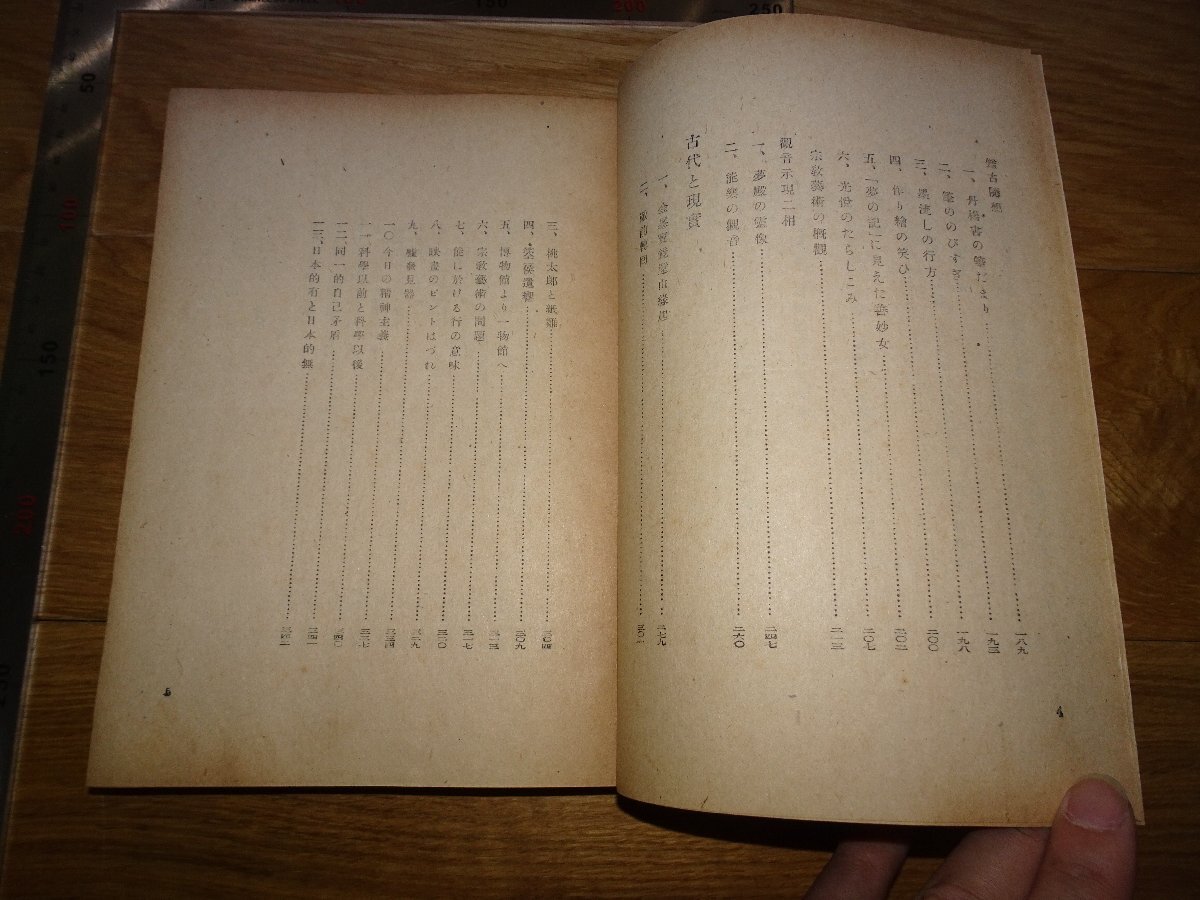 隨想
一、丹 書の筆だまり……一八九
二、筆ののびすぎ……一九三
三、墨流しの行方……一九八
四、作り繪の笑ひ……二〇〇
五、「夢の記」に見えた善妙女……二〇三
六、光悦のたらしこみ……二〇七
宗敎藝術の槪觀……二一三
觀音示現二相
一、夢殿の靈像……二四七
二、能樂の觀音……二六〇
古代と現實
一、……二七九
二、……三〇一
4
三、桃太郎と紙雛……三〇四
四、遺響……三〇九
五、博物館より一物館へ……三一三
六、宗敎藝術の問題……三一七
七、能に於ける行の意味……三二〇
八、映畫のピントはづれ……三二九
九、發見器……三三四
一〇、今日の精神主義……三三七
一一、科學以前と科學以後……三四〇
一二、同一的自己矛盾……三四一
一三、日本的有と日本的無……三四二
5
50
100
150
200
250
100
150
200
250